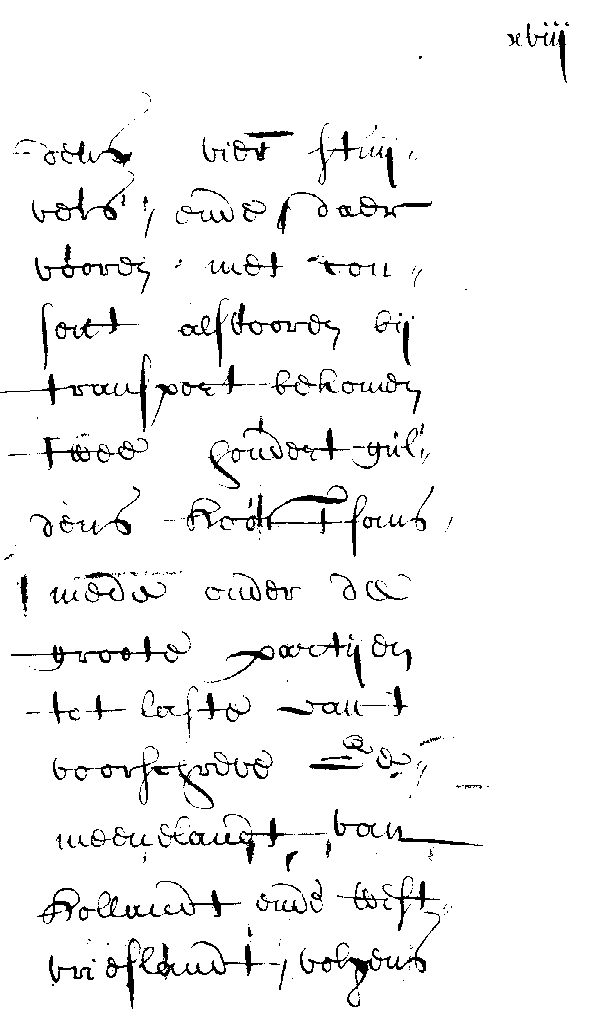 xviij
dens vier stuij,
vers, ende daer
vooren met con,
sent alsvooren bij
transport bekomen
twee hondert gul,
dens
mede onder de
groote partijen
tot laste van t
voorschreve Ge,
meenelandt van
Hollandt ende West
vrieslandt, volgens